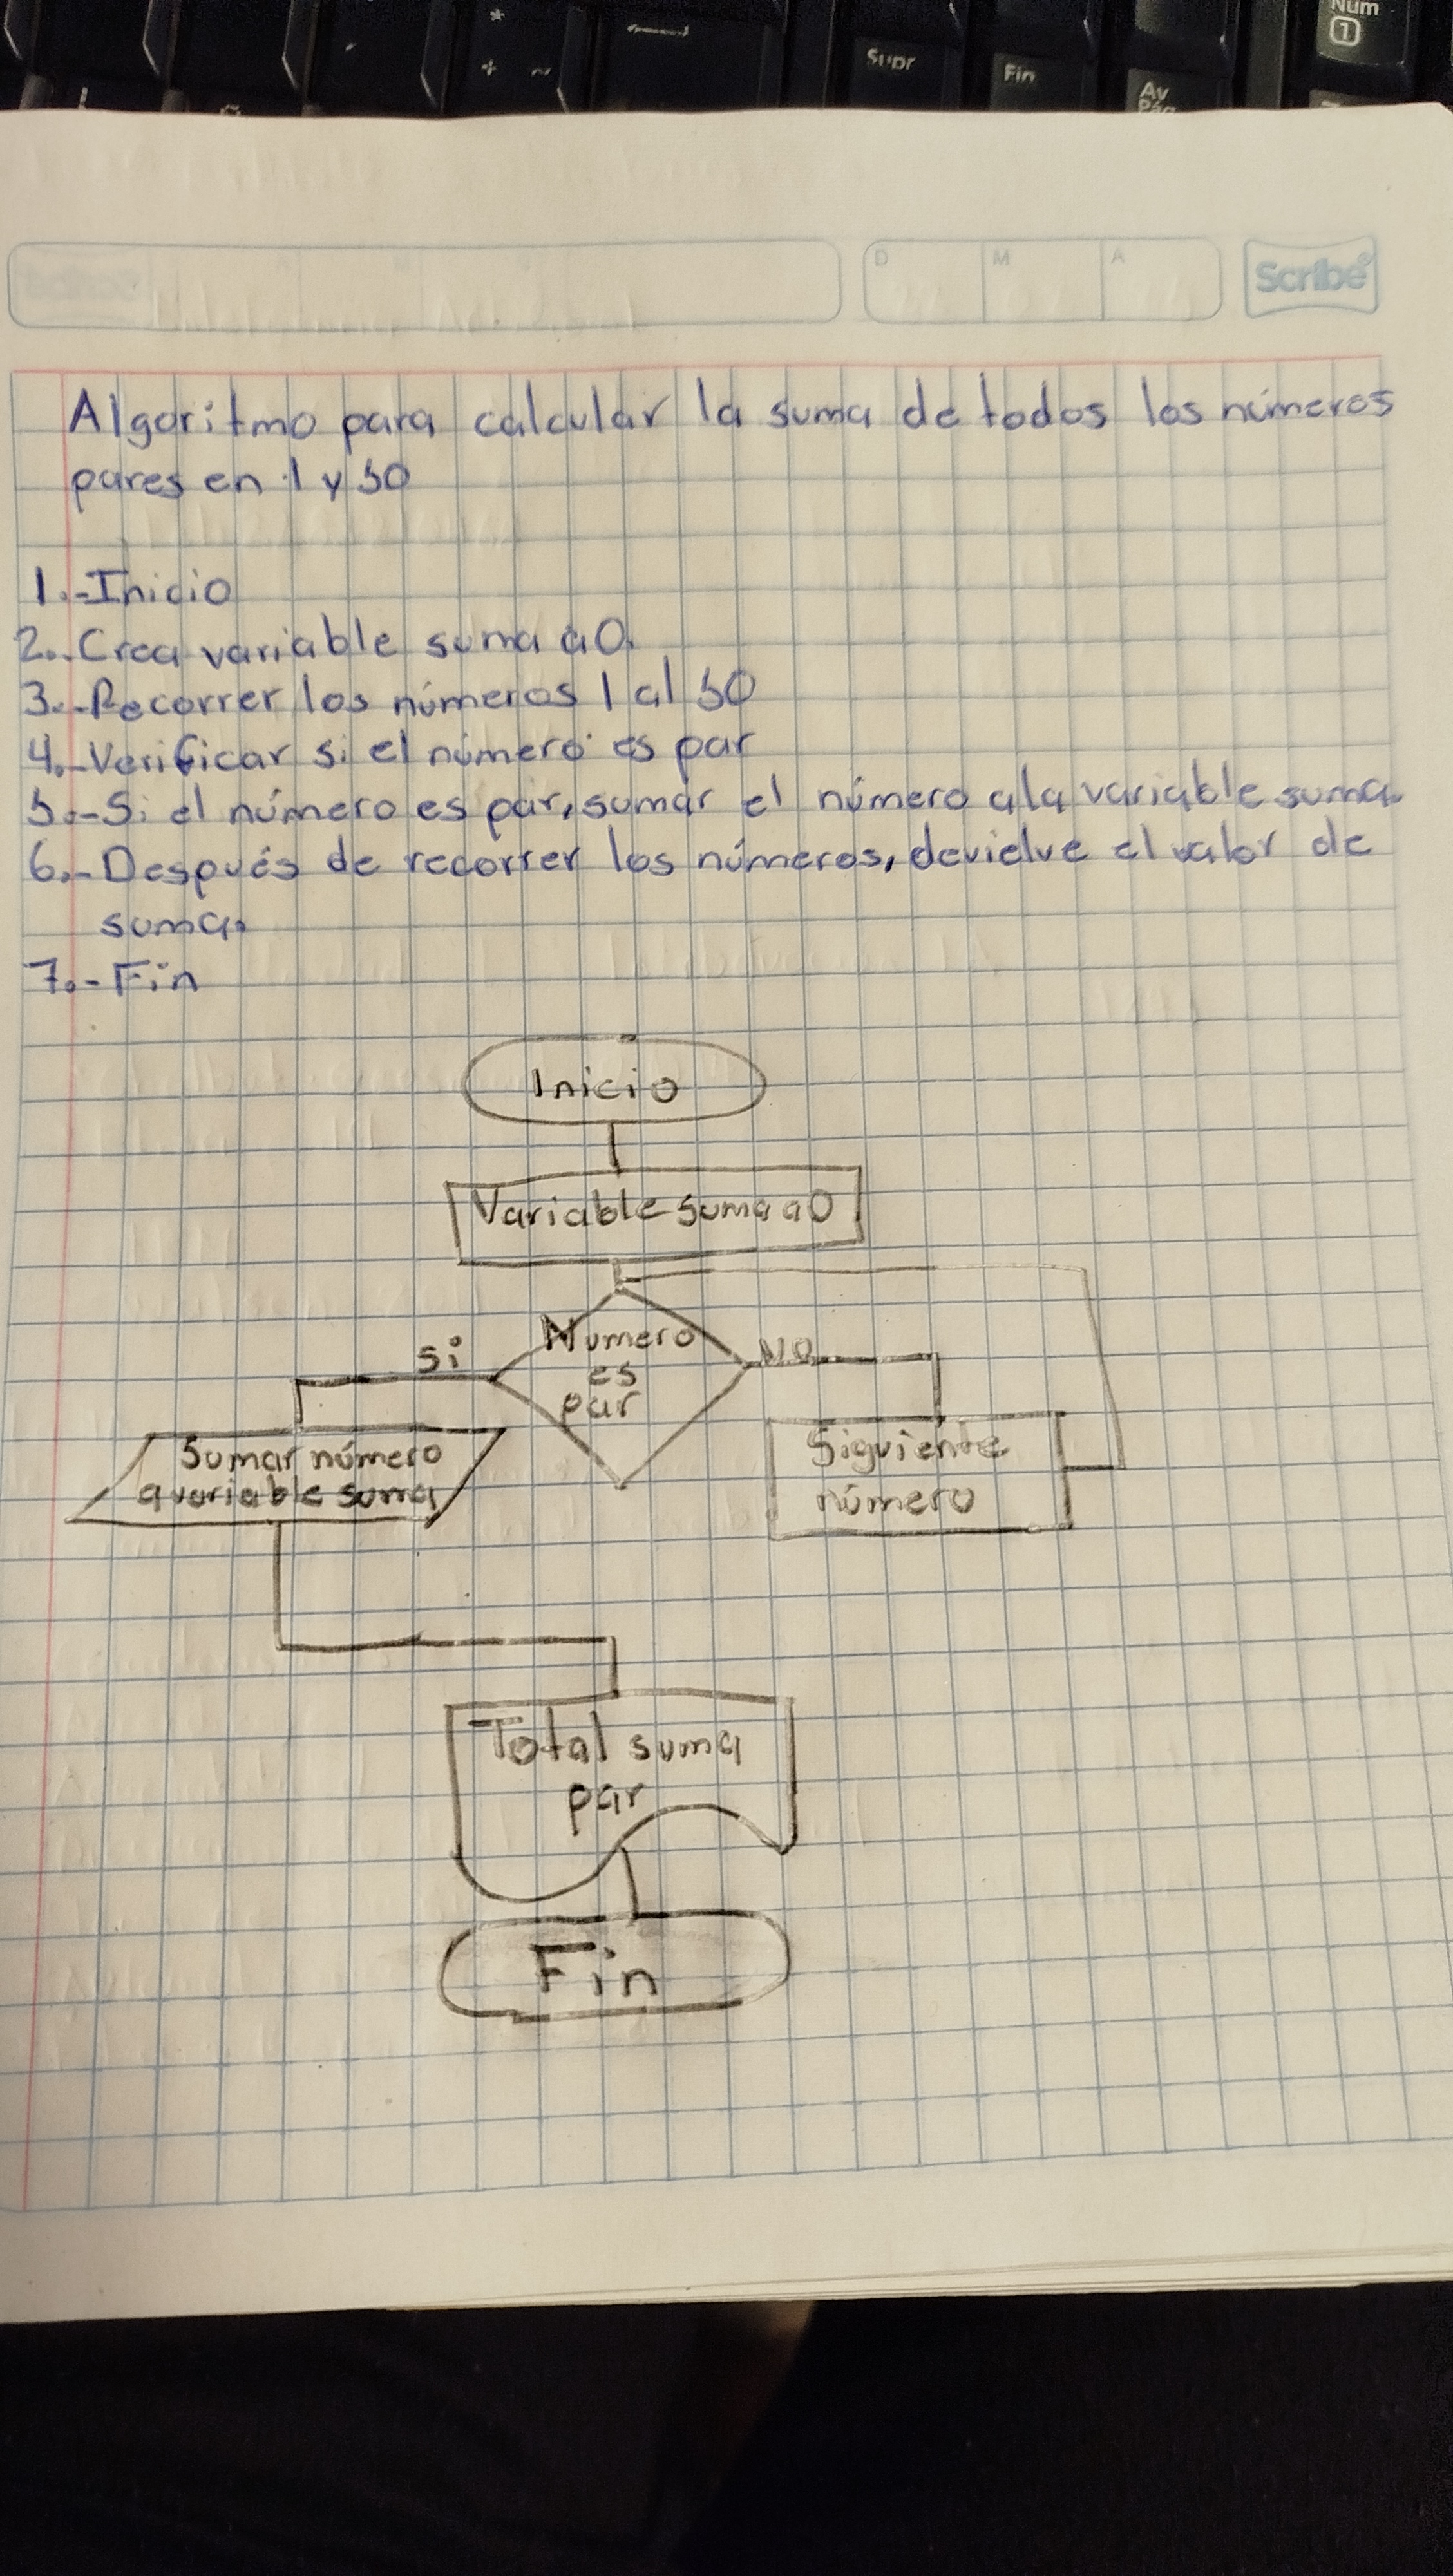 Supr
Fin
Av
Pág
Num
1
D M A
Scribe
Algoritmo para calcular la suma de todos los números
pares en 1 y 50
1.-Inicio
2.-Crea variable suma a 0.
3.-Recorrer los números 1 al 50
4.-Verificar si el número es par
5.-Si el número es par, sumar el número a la variable suma.
6.-Después de recorrer los números, devielve el valor de
suma.
7.-Fin
Inicio
Variable suma a 0
Si
Numero
es
par
NO
Sumar número
a variable suma
Siguiente
número
Total suma
par
Fin